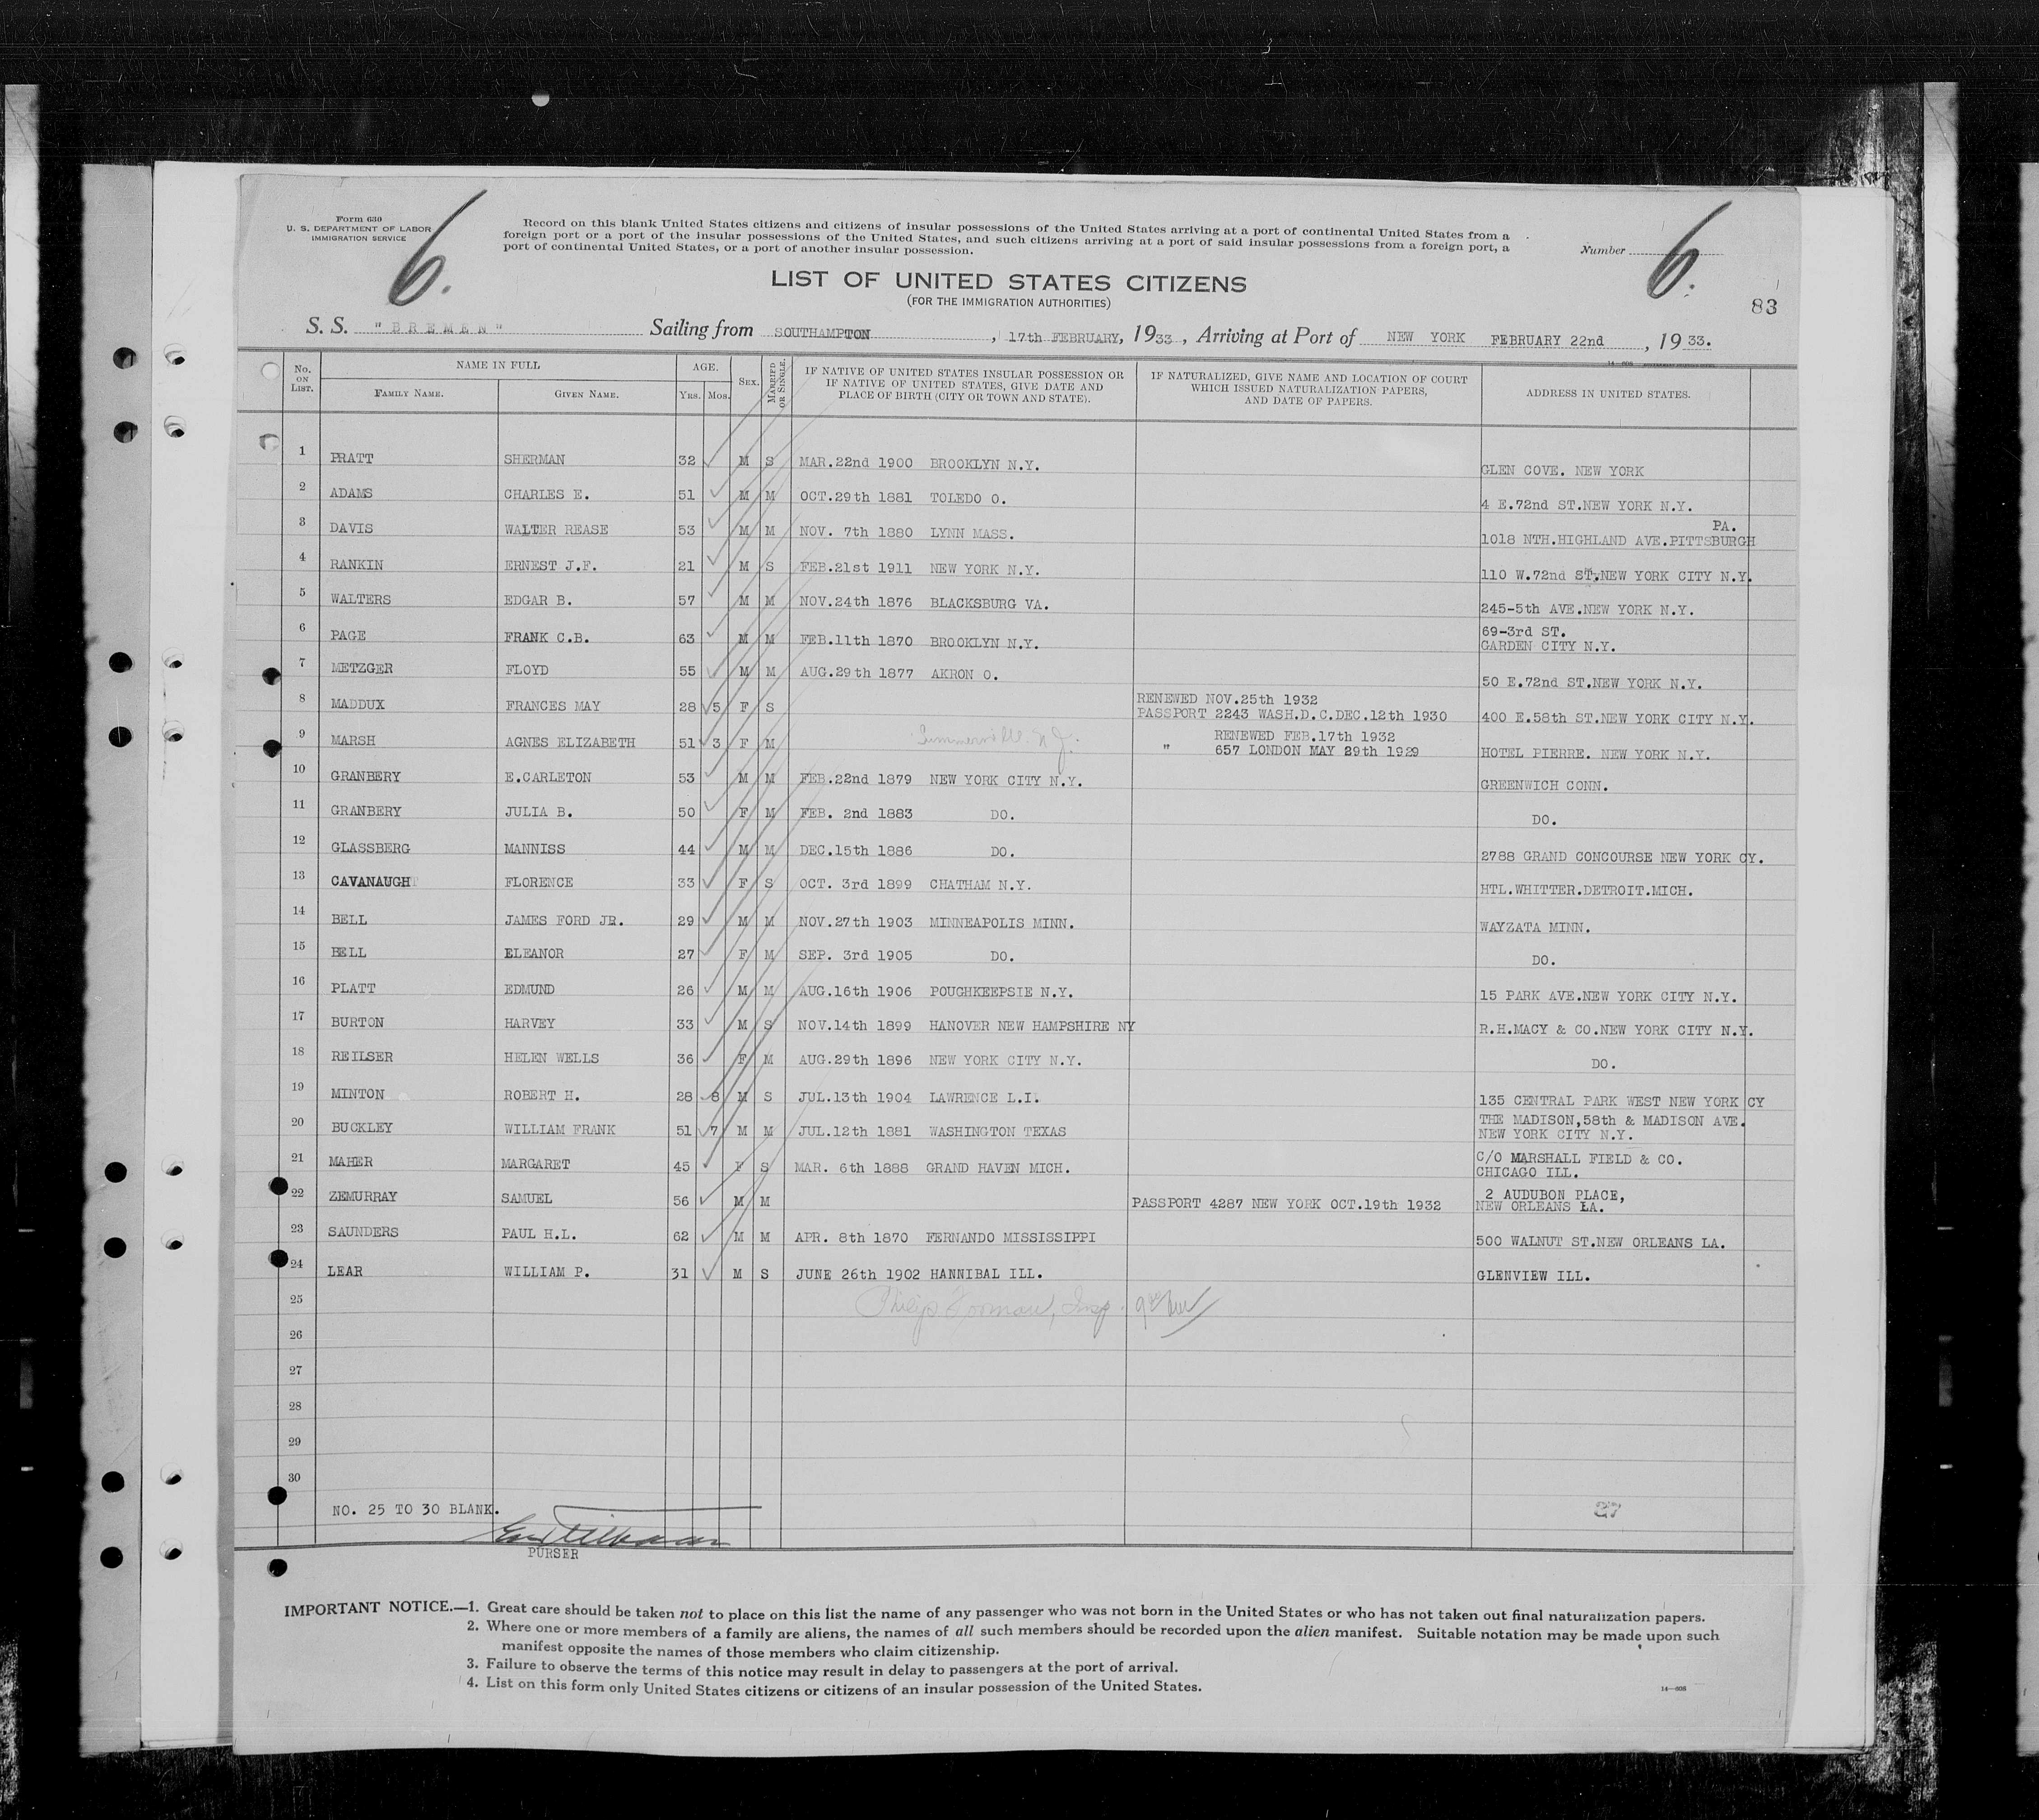 Form 630
U. S. DEPARTMENT OF LABOR
IMMIGRATION SERVICE
6.
Record on this blank United States citizens and citizens of insular possessions of the United States arriving at a port of continental United States from a
foreign port or a port of the insular possessions of the United States, and such citizens arriving at a port of said insular possessions from a foreign port, a
port of continental United States, or a port of another insular possession.
Number 6.
LIST OF UNITED STATES CITIZENS
(FOR THE IMMIGRATION AUTHORITIES)
83
S. S. "BREMEN" Sailing from SOUTHAMPTON, 17th FEBRUARY, 1933, Arriving at Port of NEW YORK FEBRUARY 22nd, 1933.
No. ON LIST. NAME IN FULL FAMILY NAME. GIVEN NAME. AGE. YRS. MOS. SEX. MARRIED OR SINGLE. IF NATIVE OF UNITED STATES INSULAR POSSESSION OR IF NATIVE OF UNITED STATES, GIVE DATE AND PLACE OF BIRTH (CITY OR TOWN AND STATE). IF NATURALIZED, GIVE NAME AND LOCATION OF COURT WHICH ISSUED NATURALIZATION PAPERS, AND DATE OF PAPERS. ADDRESS IN UNITED STATES.
1 PRATT SHERMAN 32 M S MAR.22nd 1900 BROOKLYN N.Y. GLEN COVE. NEW YORK
2 ADAMS CHARLES E. 51 M M OCT.29th 1881 TOLEDO O. 4 E.72nd ST.NEW YORK N.Y.
3 DAVIS WALTER REASE 53 M M NOV. 7th 1880 LYNN MASS. 1018 NTH.HIGHLAND AVE.PITTSBURGH PA.
4 RANKIN ERNEST J.F. 21 M S FEB.21st 1911 NEW YORK N.Y. 110 W.72nd ST,NEW YORK CITY N.Y.
5 WALTERS EDGAR B. 57 M M NOV.24th 1876 BLACKSBURG VA. 245-5th AVE.NEW YORK N.Y.
6 PAGE FRANK C.B. 63 M M FEB.11th 1870 BROOKLYN N.Y. 69-3rd ST. GARDEN CITY N.Y.
7 METZGER FLOYD 55 M M AUG.29th 1877 AKRON O. 50 E.72nd ST.NEW YORK N.Y.
8 MADDUX FRANCES MAY 28 5 F S RENEWED NOV.25th 1932 PASSPORT 2243 WASH.D.C.DEC.12th 1930 400 E.58th ST.NEW YORK CITY N.Y.
9 MARSH AGNES ELIZABETH 51 3 F M Summerville. N.J. RENEWED FEB.17th 1932 " 657 LONDON MAY 29th 1929 HOTEL PIERRE. NEW YORK N.Y.
10 GRANBERY E.CARLETON 53 M M FEB.22nd 1879 NEW YORK CITY N.Y. GREENWICH CONN.
11 GRANBERY JULIA B. 50 F M FEB. 2nd 1883 DO. DO.
12 GLASSBERG MANNISS 44 M M DEC.15th 1886 DO. 2788 GRAND CONCOURSE NEW YORK CY.
13 CAVANAUGH FLORENCE 33 F S OCT. 3rd 1899 CHATHAM N.Y. HTL.WHITTER.DETROIT.MICH.
14 BELL JAMES FORD JR. 29 M M NOV.27th 1903 MINNEAPOLIS MINN. WAYZATA MINN.
15 BELL ELEANOR 27 F M SEP. 3rd 1905 DO. DO.
16 PLATT EDMUND 26 M M AUG.16th 1906 POUGHKEEPSIE N.Y. 15 PARK AVE.NEW YORK CITY N.Y.
17 BURTON HARVEY 33 M S NOV.14th 1899 HANOVER NEW HAMPSHIRE NY R.H.MACY & CO.NEW YORK CITY N.Y.
18 REILSER HELEN WELLS 36 F M AUG.29th 1896 NEW YORK CITY N.Y. DO.
19 MINTON ROBERT H. 28 8 M S JUL.13th 1904 LAWRENCE L.I. 135 CENTRAL PARK WEST NEW YORK CY
20 BUCKLEY WILLIAM FRANK 51 7 M M JUL.12th 1881 WASHINGTON TEXAS THE MADISON,58th & MADISON AVE. NEW YORK CITY N.Y.
21 MAHER MARGARET 45 F S MAR. 6th 1888 GRAND HAVEN MICH. C/O MARSHALL FIELD & CO. CHICAGO ILL.
22 ZEMURRAY SAMUEL 56 M M PASSPORT 4287 NEW YORK OCT.19th 1932 2 AUDUBON PLACE, NEW ORLEANS LA.
23 SAUNDERS PAUL H.L. 62 M M APR. 8th 1870 FERNANDO MISSISSIPPI 500 WALNUT ST.NEW ORLEANS LA.
24 LEAR WILLIAM P. 31 M S JUNE 26th 1902 HANNIBAL ILL. GLENVIEW ILL.
25 Philip Forman, Insp.
26
27
28
29
30
NO. 25 TO 30 BLANK.
27
PURSER
IMPORTANT NOTICE.—1. Great care should be taken not to place on this list the name of any passenger who was not born in the United States or who has not taken out final naturalization papers.
2. Where one or more members of a family are aliens, the names of all such members should be recorded upon the alien manifest. Suitable notation may be made upon such
manifest opposite the names of those members who claim citizenship.
3. Failure to observe the terms of this notice may result in delay to passengers at the port of arrival.
4. List on this form only United States citizens or citizens of an insular possession of the United States.